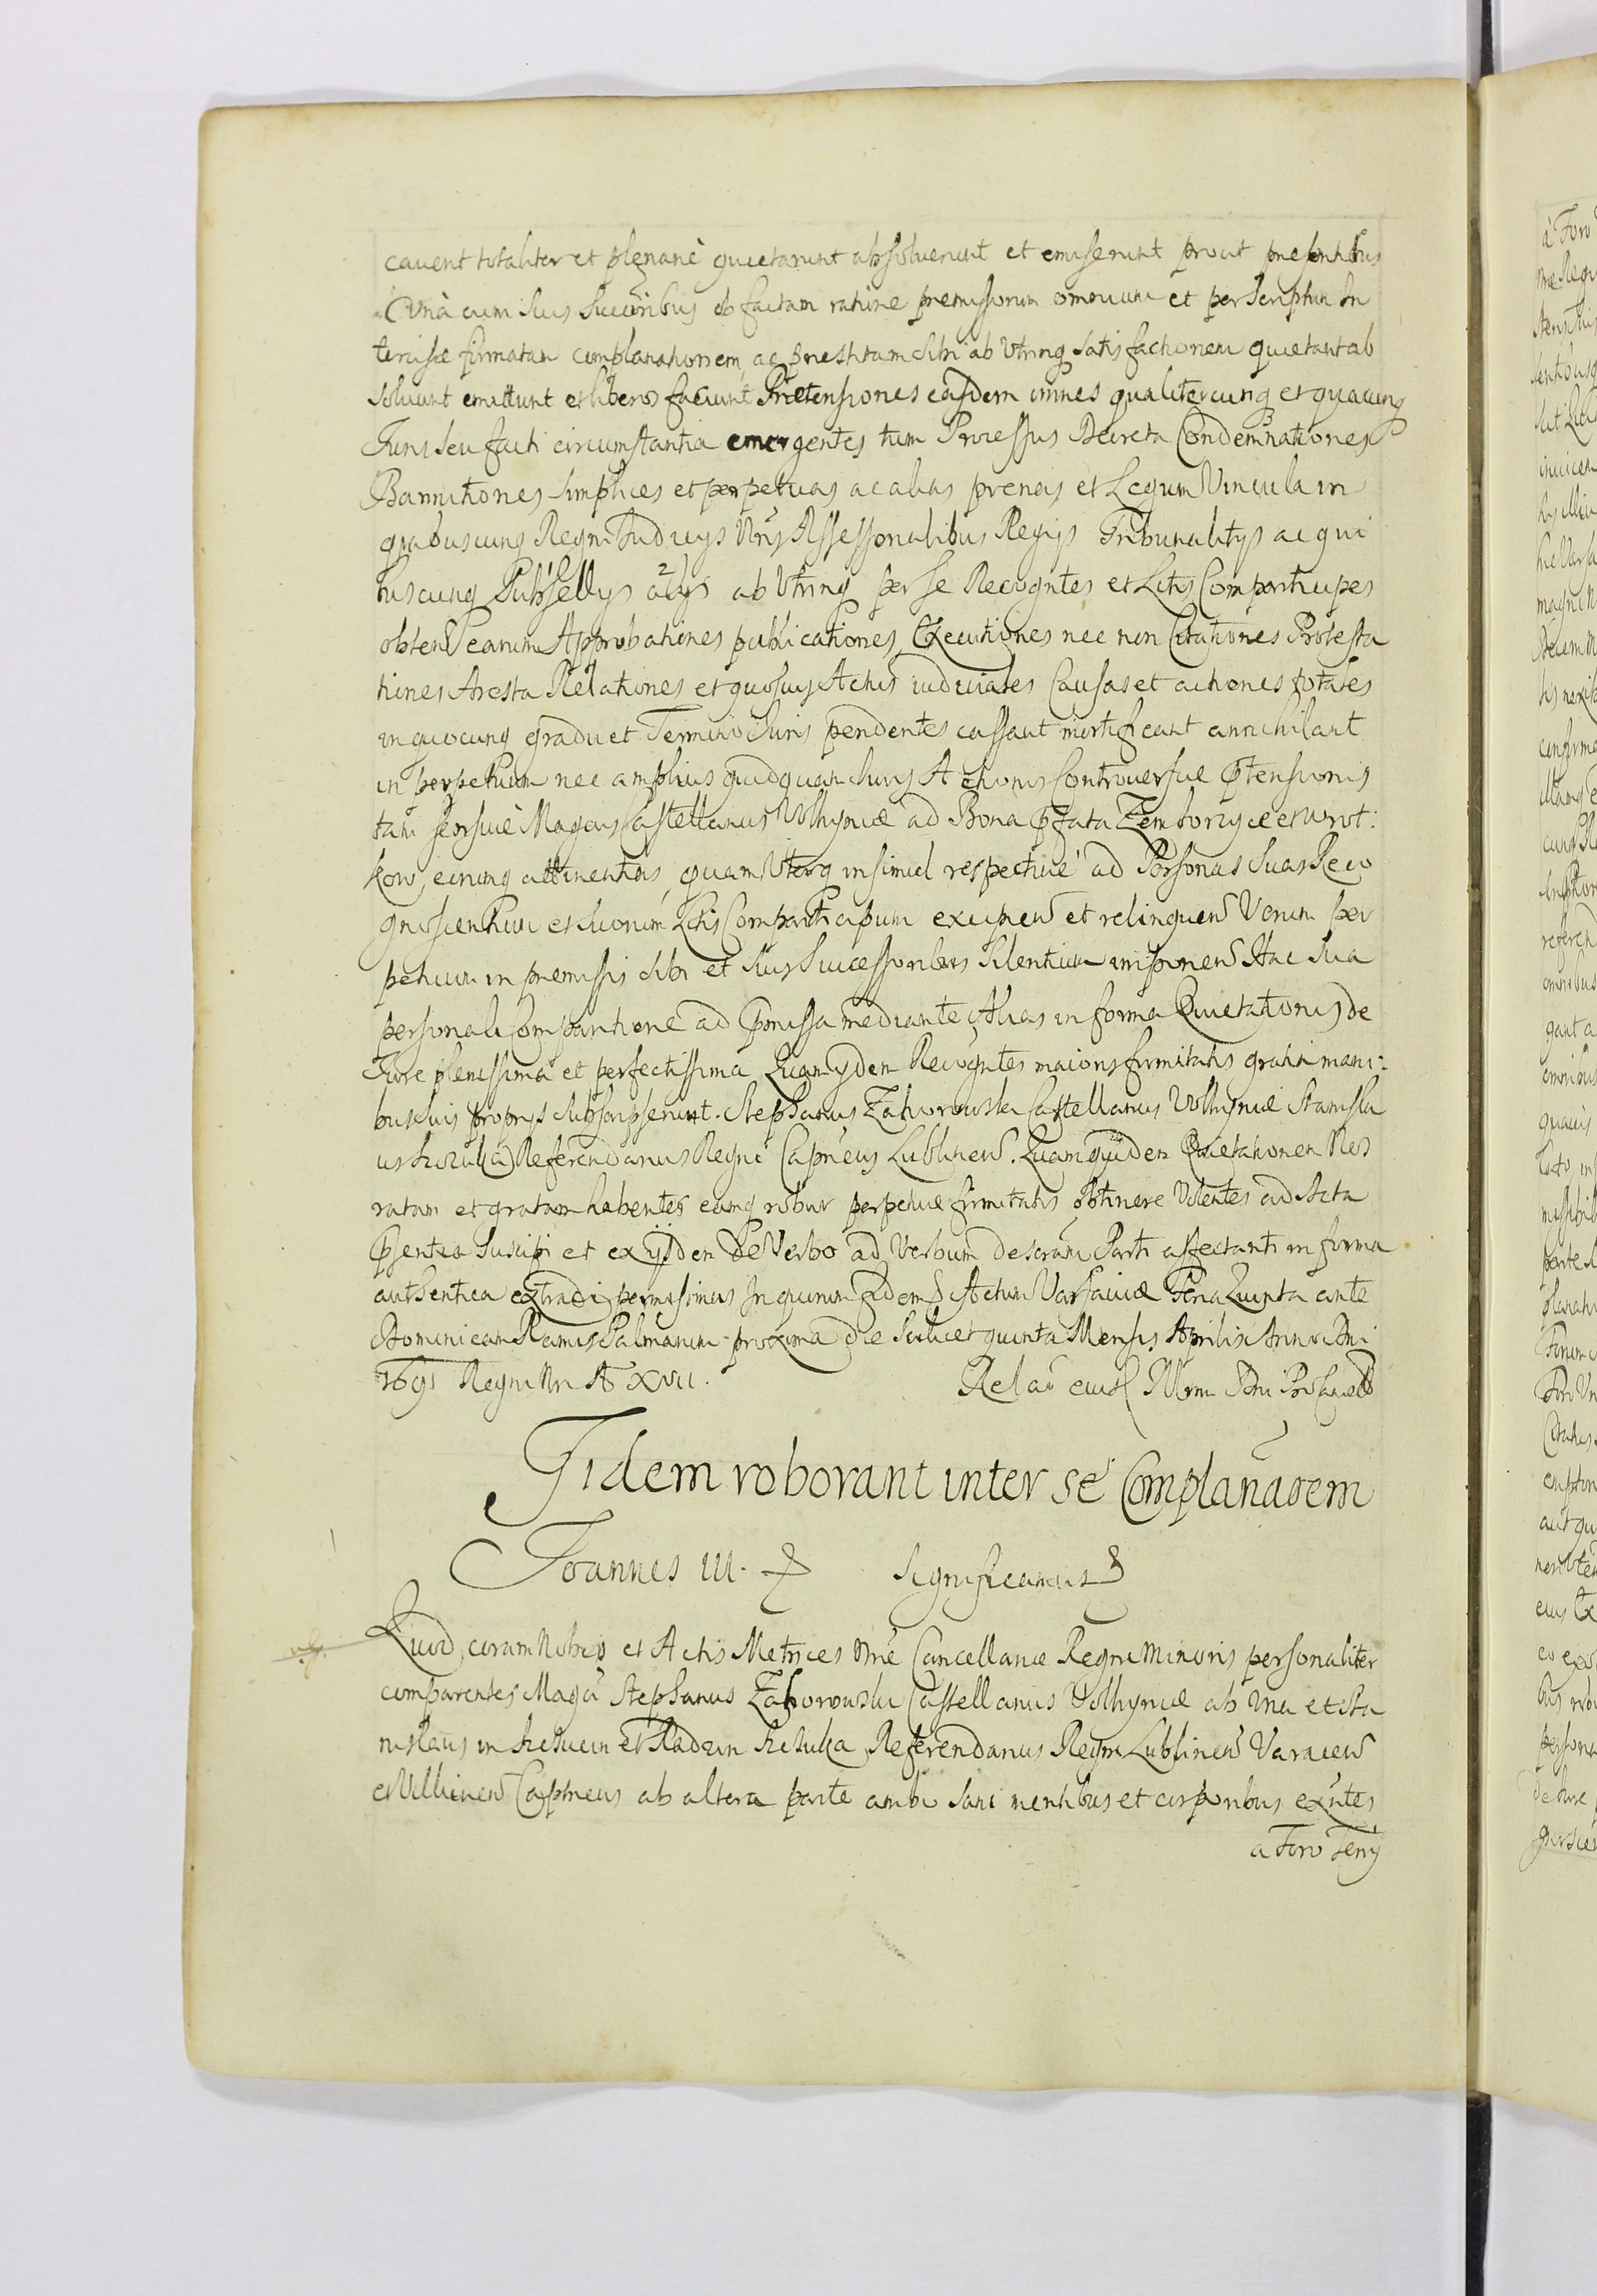 cavent totaliter et plenariè quietarunt absolverunt et emiserunt prout presentibus
Unà cum suis Succribus ob factam ratione premissorum omnium et per Scriptum In
ter ipsæ firmatam complanationem, ac præstitam sibi ab Utrinq satisfactionem quietant ab
solvunt emittunt et liberos faciunt Prætensiones easdem omnes qualitercunq et quacunq
Juris seu facti circumstantia emergentes tum Processus Decreta Condemnationes
Bannitiones simplices et perpetuas ac alias prenas et Legum Vincula in
quibuscunq Regni Iudicijs Nris Assessorialibus Regijs Tribunalitijs ac qui
buscunq Subsellijs alijs ab Utrinq per se Recogntes et Litis Comparticipes
obten earum Approbationes publicationes Executiones nec non Citationes Protesta
tiones Aresta Relationes et quosvis Actus iudiciales Causas et actiones totales
in quocunq gradu et Termino Iuris pendentes cassant mortificant annihilant
in perpetuum nec amplius quidquam Iuris Actionis Controversiæ Ptensionis
tam seorsivè Magcus Castellanus Volhyniæ ad Bona Pfata Zemborzyce et Wrot:
kow, eorumq attinentias, quam Uterq insimul respectivè ad Personas suas Reco
gnoscentium et suorum Litis Comparticipum excipien et relinquen Verum per
petuum in premissis sibi et suis Successoribus Silentium imponen Hac sua
personali Comparitione ad Pmissa mediante, Alias in forma Quietationis de
Iure plenissima et perfectissima Quam ijdem Recogntes maioris firmitatis gratia mani:
bus suis proprijs subscripserunt. Stephanus Zahorowski Castellanus Volhyniæ Stanisla
us Referendarius Regni Capneus Lublinen. Quamquidem Quietationem Nos
ratam et gratam habentes eamq robur perpetuæ firmitatis obtinere Volentes ad Acta
Psentia Suscipi et ex ijsdem de Verbo ad Verbum descram Parti affectanti in forma
authentica extradi permisimus In quorum fidem Actum Varsaviæ Feria Quinta ante
Dominicam Ramis Palmarum proxima die scilicet quinta Mensis Aprilis Anno Dni
1691 Regni Nri A XVII. Relao eiusd Illrmi Dni Procancell
Iidem roborant inter se Complanãoem
Joannes III. Significamus
Quod coram Nobis et Actis Metrices Nræ Cancellariæ Regni Minoris personaliter
comparentes Magci Stephanus Zahorowski Castellanus Volhyniæ ab Una et Sta
nislaus in et Radzin Referendarius Regni Lublinen
Capneus ab altera parte ambo sani mentibus et corporibus exntes
a Foro Terrij